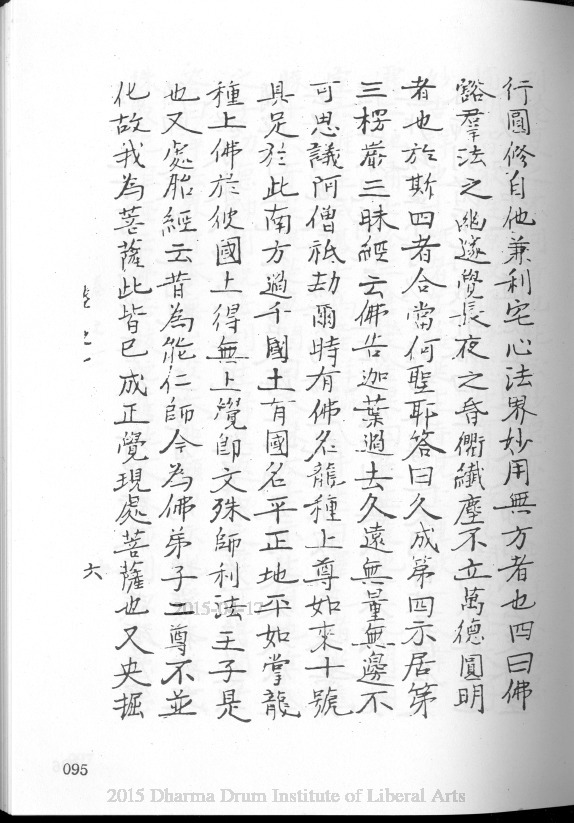 行圓修自他兼利宅心法界妙用無方者也四曰佛
豁羣法之幽邃覺長夜之昏衢纖塵不立萬德圓明
者也於斯四者合當何聖耶答曰久成第四示居第
三楞嚴三昧經云佛告迦葉過去久遠無量無邊不
可思議阿僧祇劫爾時有佛名龍種上尊如來十號
具足於此南方過千國土有國名平正地平如掌龍
種上佛於彼國上得無上覺即文殊師利法王子是
也又處胎經云昔為能仁師今為佛弟子二尊不並
化故我為菩薩此皆已成正覺現處菩薩也又央掘
卷之一
六
095
2015 Dharma Drum Institute of Liberal Arts